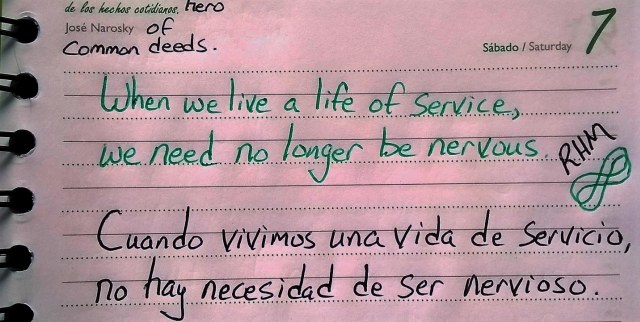 de los hechos cotidianos. Hero
José Narosky of
Common deeds.
Sábado / Saturday 7
When we live a life of service,
we need no longer be nervous.
RHM
Cuando vivimos una vida de servicio,
no hay necesidad de ser nervioso.